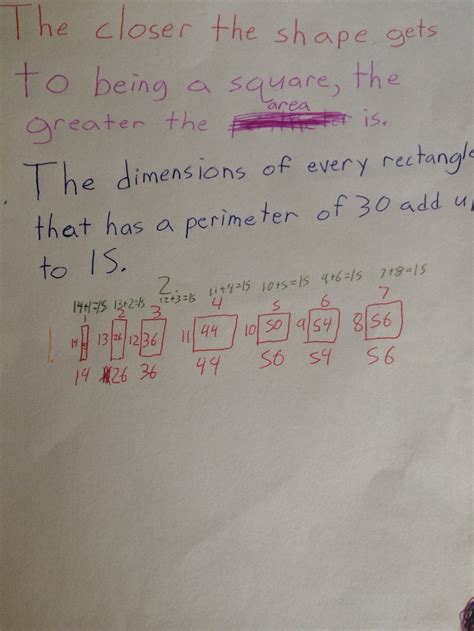 The closer the shape gets
to being a square, the
area
greater the is.
The dimensions of every rectangle
that has a perimeter of 30 add u
to 15.
2.
14+1=15 13+2=15 12+3=15 11+4=15 10+5=15 9+6=15 7+8=15
2 3 4 5 6 7
14 13 26 12 36 11 44 10 50 9 54 8 56
14 26 36 44 50 54 56